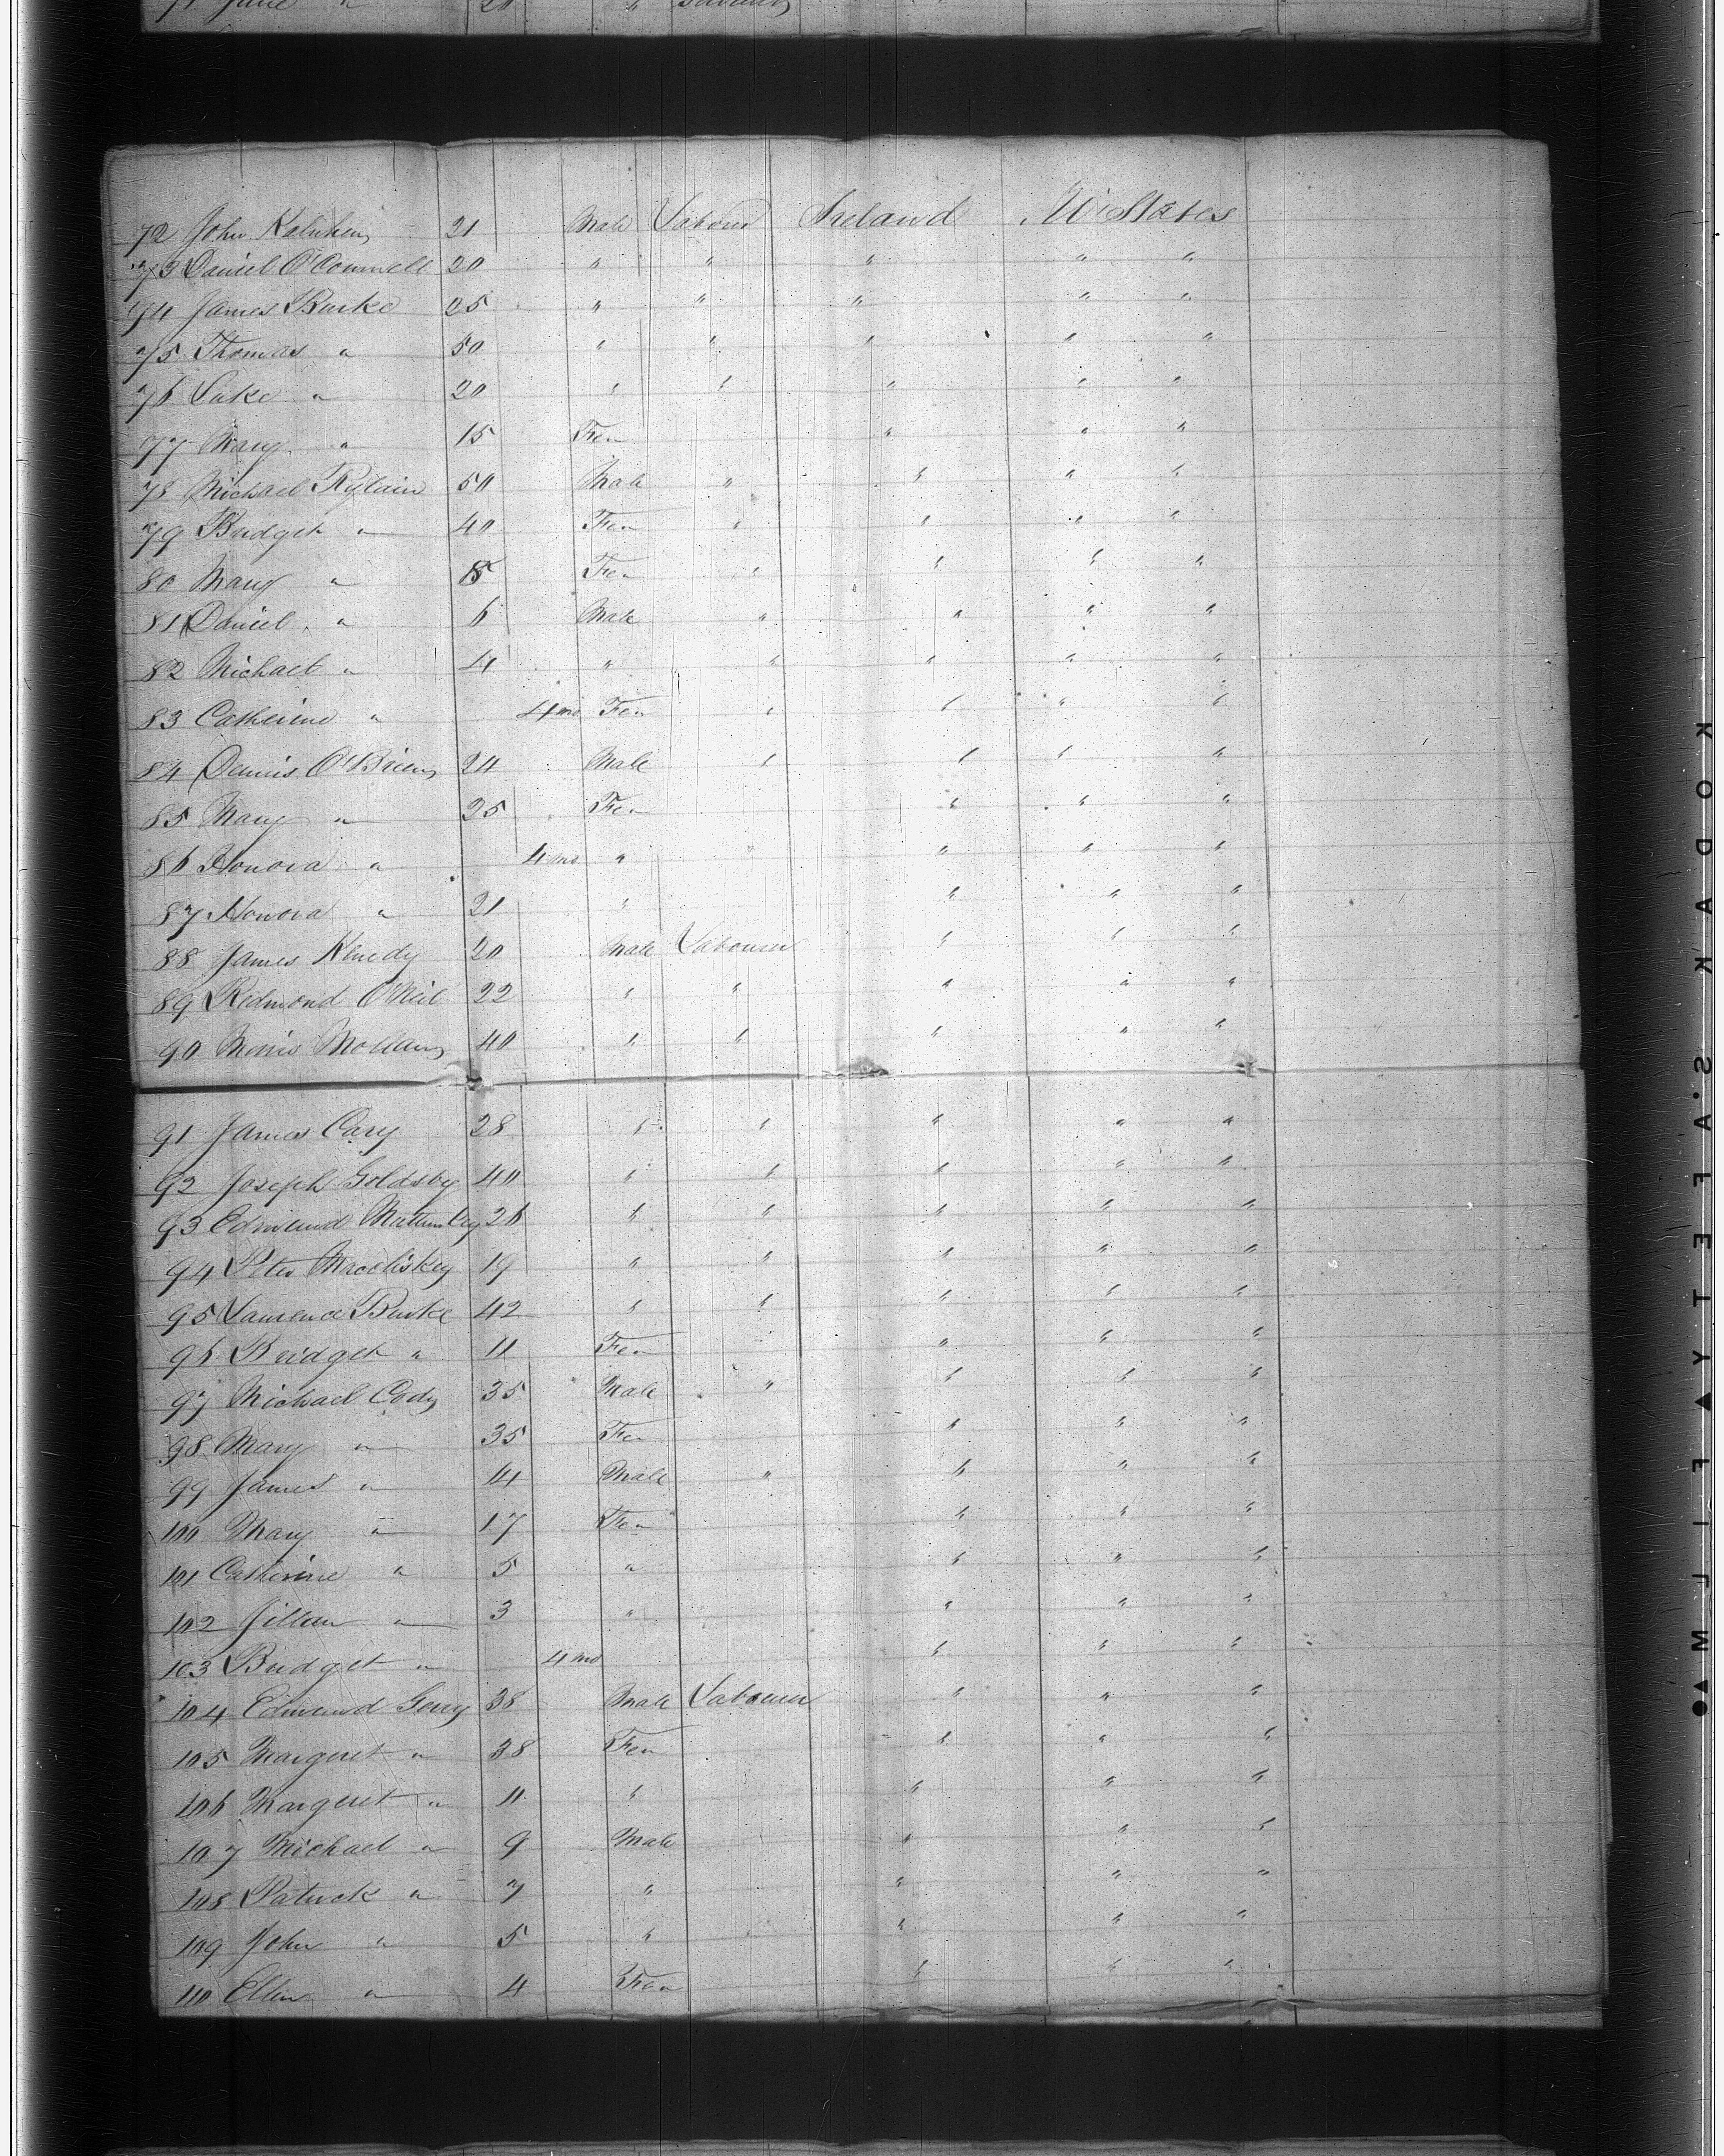 71 Jane " 20 "
72 John 21 Male Labour Ireland U States
73 Daniel O'Connell 20 " " " " "
74 James Burke 25 " " " " "
75 Thomas " 50 " " " " "
76 Luke " 20 " " " " "
77 Mary " 15 Fem " " "
78 Michael 50 Male " " " "
79 Bridget " 40 Fem " " " "
80 Mary " 15 Fem " " " "
81 Daniel " 6 Male " " " "
82 Michael " 4 " " " " "
83 Catherine " 4 mo Fem " " " "
84 Dennis O'Brien 24 Male " " " "
85 Mary " 25 Fem " " "
86 Honora " 4 mo " " " " "
87 Honora " 21 " " " "
88 James Kenedy 20 Male Labourer " " "
89 Redmond O'Neil 22 " " " " "
90 Morris 40 " " " " "
91 James Cary 28 " " " " "
92 Joseph Goldsby 40 " " " " "
93 Edmund 26 " " " " "
94 Peter 19 " " " " "
95 Laurence Burke 42 " " " " "
96 Bridget " 11 Fem " " "
97 Michael Cody 35 Male " " " "
98 Mary " 35 Fem " " "
99 James " 14 Male " " " "
100 Mary " 17 Fem " " "
101 Catherine " 5 " " " "
102 " 3 " " " "
103 Bridget " 4 mo " " "
104 Edmund 38 Male Labourer " " "
105 Margeret " 38 Fem " " "
106 Margeret " 11 " " " "
107 Michael " 9 Male " " "
108 Patrick " 7 " " " "
109 John " 5 " " " "
110 Ellen " 4 Fem " " "
KODAK S.A.FETY ▲ FILM ▲●